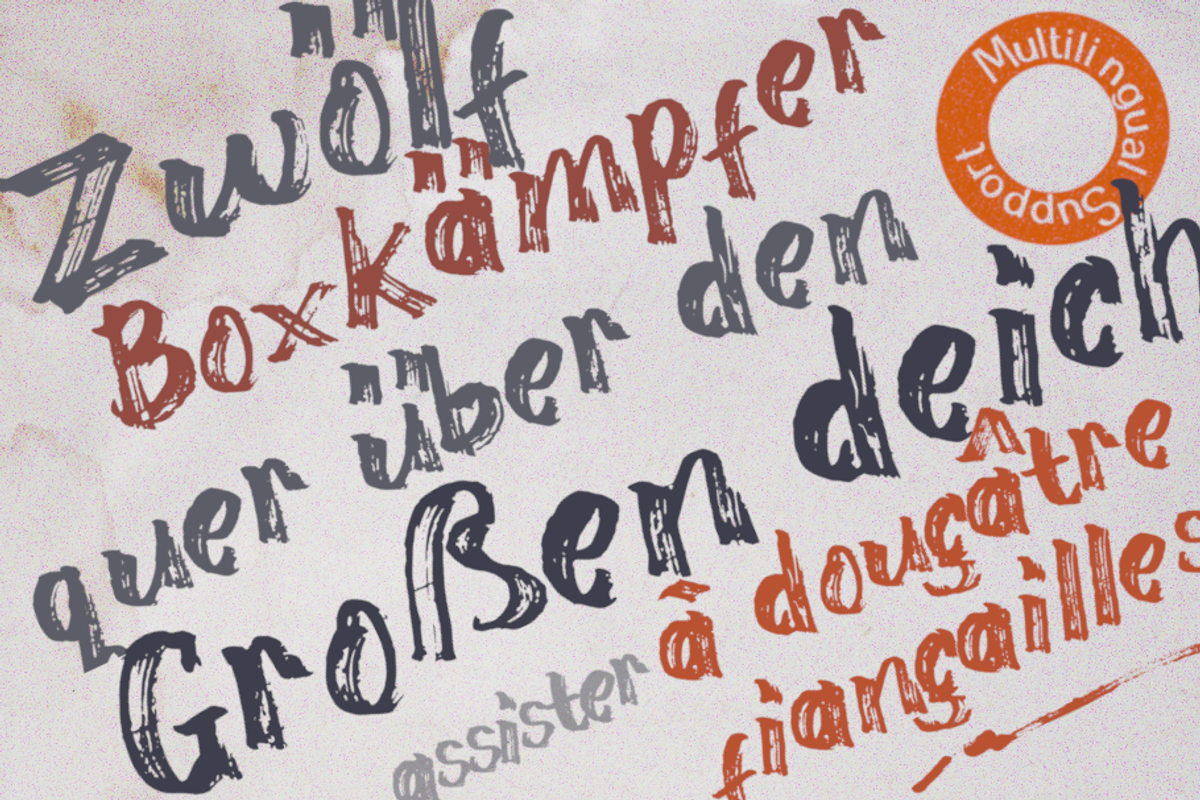 Zwölf
Boxkämpfer
quer über den
Großen deich
assister
à douçâtre
fiançailles
Multilingual Support